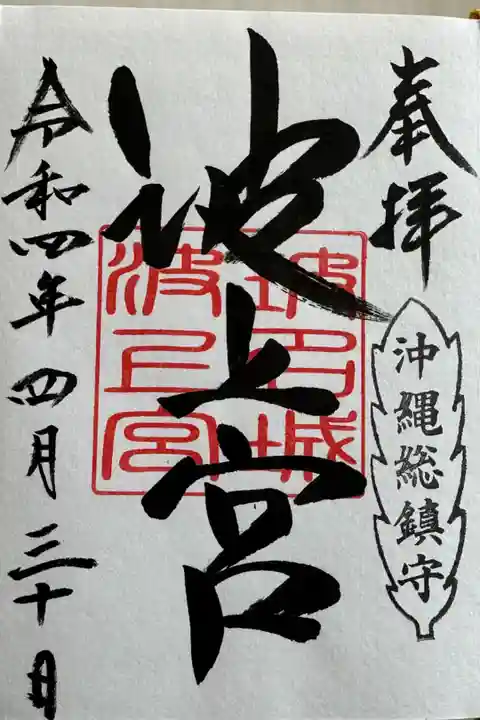 奉拝
沖縄総鎮守
波上宮
波上宮
令和四年四月三十日